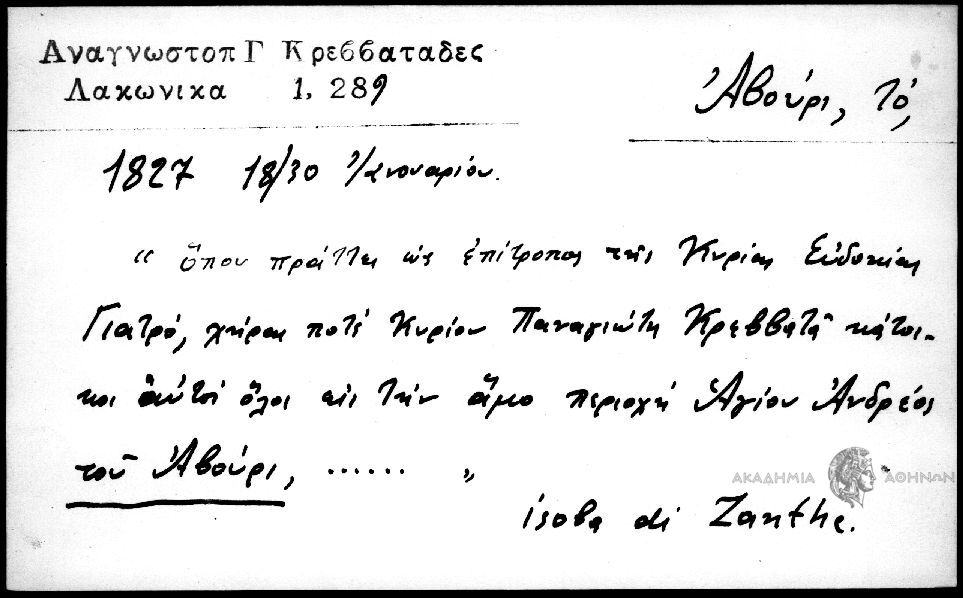 Αναγνωστοπ Γ Κρεββαταδες
Λακωνικα 1, 289
Ἀβούρι, τό,
1827 18/30 Ἰανουαρίου.
“ ὅπου πράττει ὡς ἐπίτροπος τῆς Κυρίας Εὐδοκίας
Γιατρό, χήρας ποτέ Κυρίου Παναγιώτη Κρεββατᾶ κάτοι-
κοι αὐτοί ὅλοι εἰς τήν ἄμο περιοχή Ἁγίου Ἀνδρέος
τοῦ Ἀβούρι, ...... „
ΑΚΑΔΗΜΙΑ ΑΘΗΝΩΝ
isola di Zanthe.